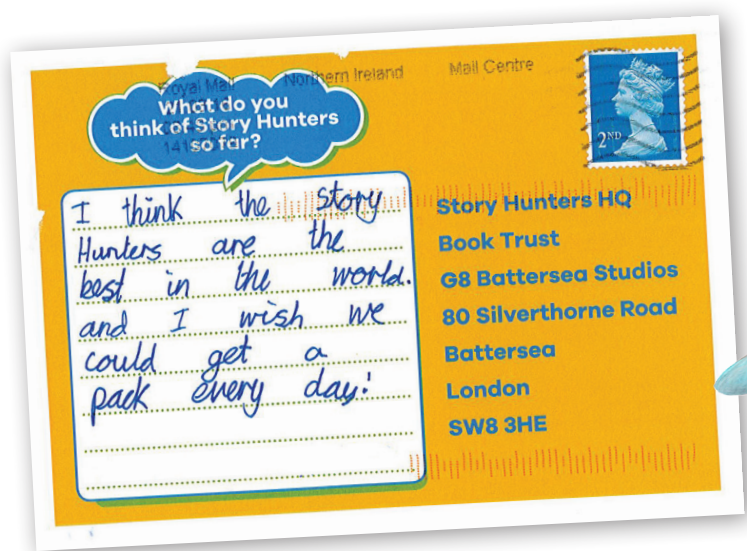 Royal Mail Northern Ireland Mail Centre
What do you
think of Story Hunters
so far?
2ND
I think the story
Hunters are the
best in the world.
and I wish we
could get a
pack every day!
Story Hunters HQ
Book Trust
G8 Battersea Studios
80 Silverthorne Road
Battersea
London
SW8 3HE